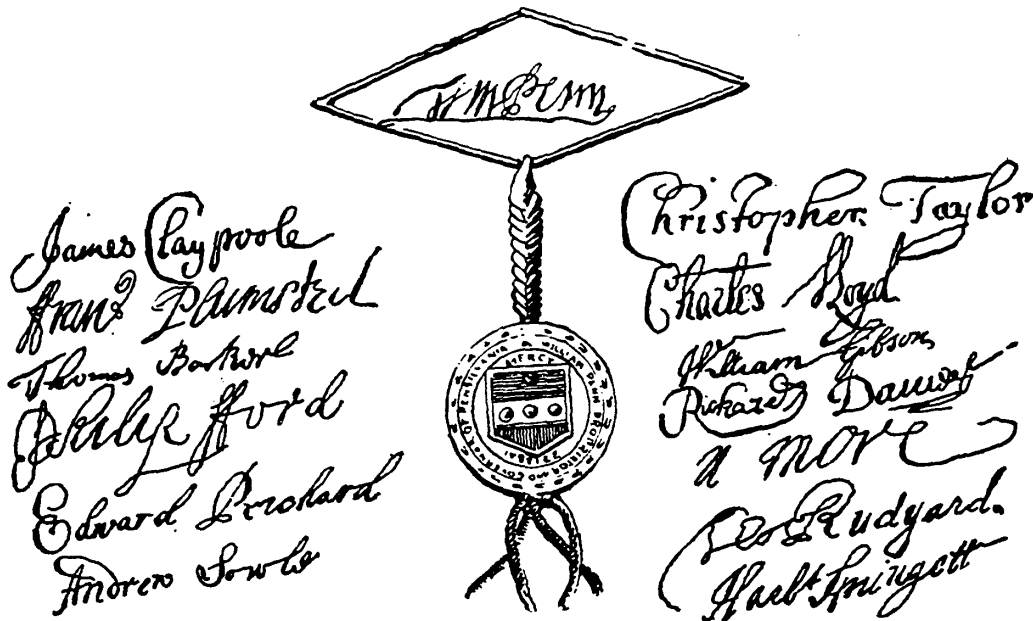 Wm Penn
James Claypoole
ffrans Plumsted
Thomas Barker
Philip fford
Edward Prichard
Andrew Sowle
MERCY
WILLIAM PENN PROPRIETOR AND GOVERNOR OF PENSILVANIA
Christopher Taylor
Charles Lloyd
William Gibson
Richard Davies
n more
Rudyard.
Harbt Springett